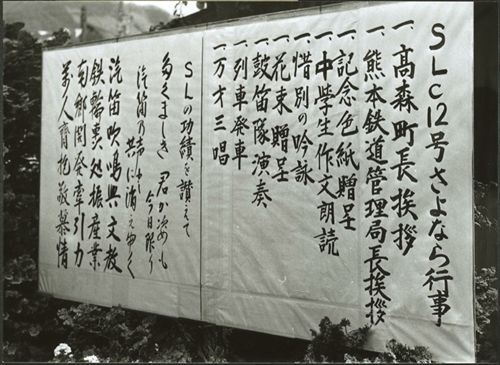 SLC12号さよなら行事
一、髙森町長挨拶
一、熊本鉄道管理局長挨拶
一、記念色紙贈呈
一、中學生作文朗読
一、惜別の吟詠
一、花束贈呈
一、鼓笛隊演奏
一、列車発車
一、万才三唱
SLの功績を讃えて
多くましき 君が姿も
今日限り
汽笛乃
共に消えゆく
汽笛吹鳴興文教
鉄輪 処振産業
南郷開発牽引力
萬人齊抱敬慕情